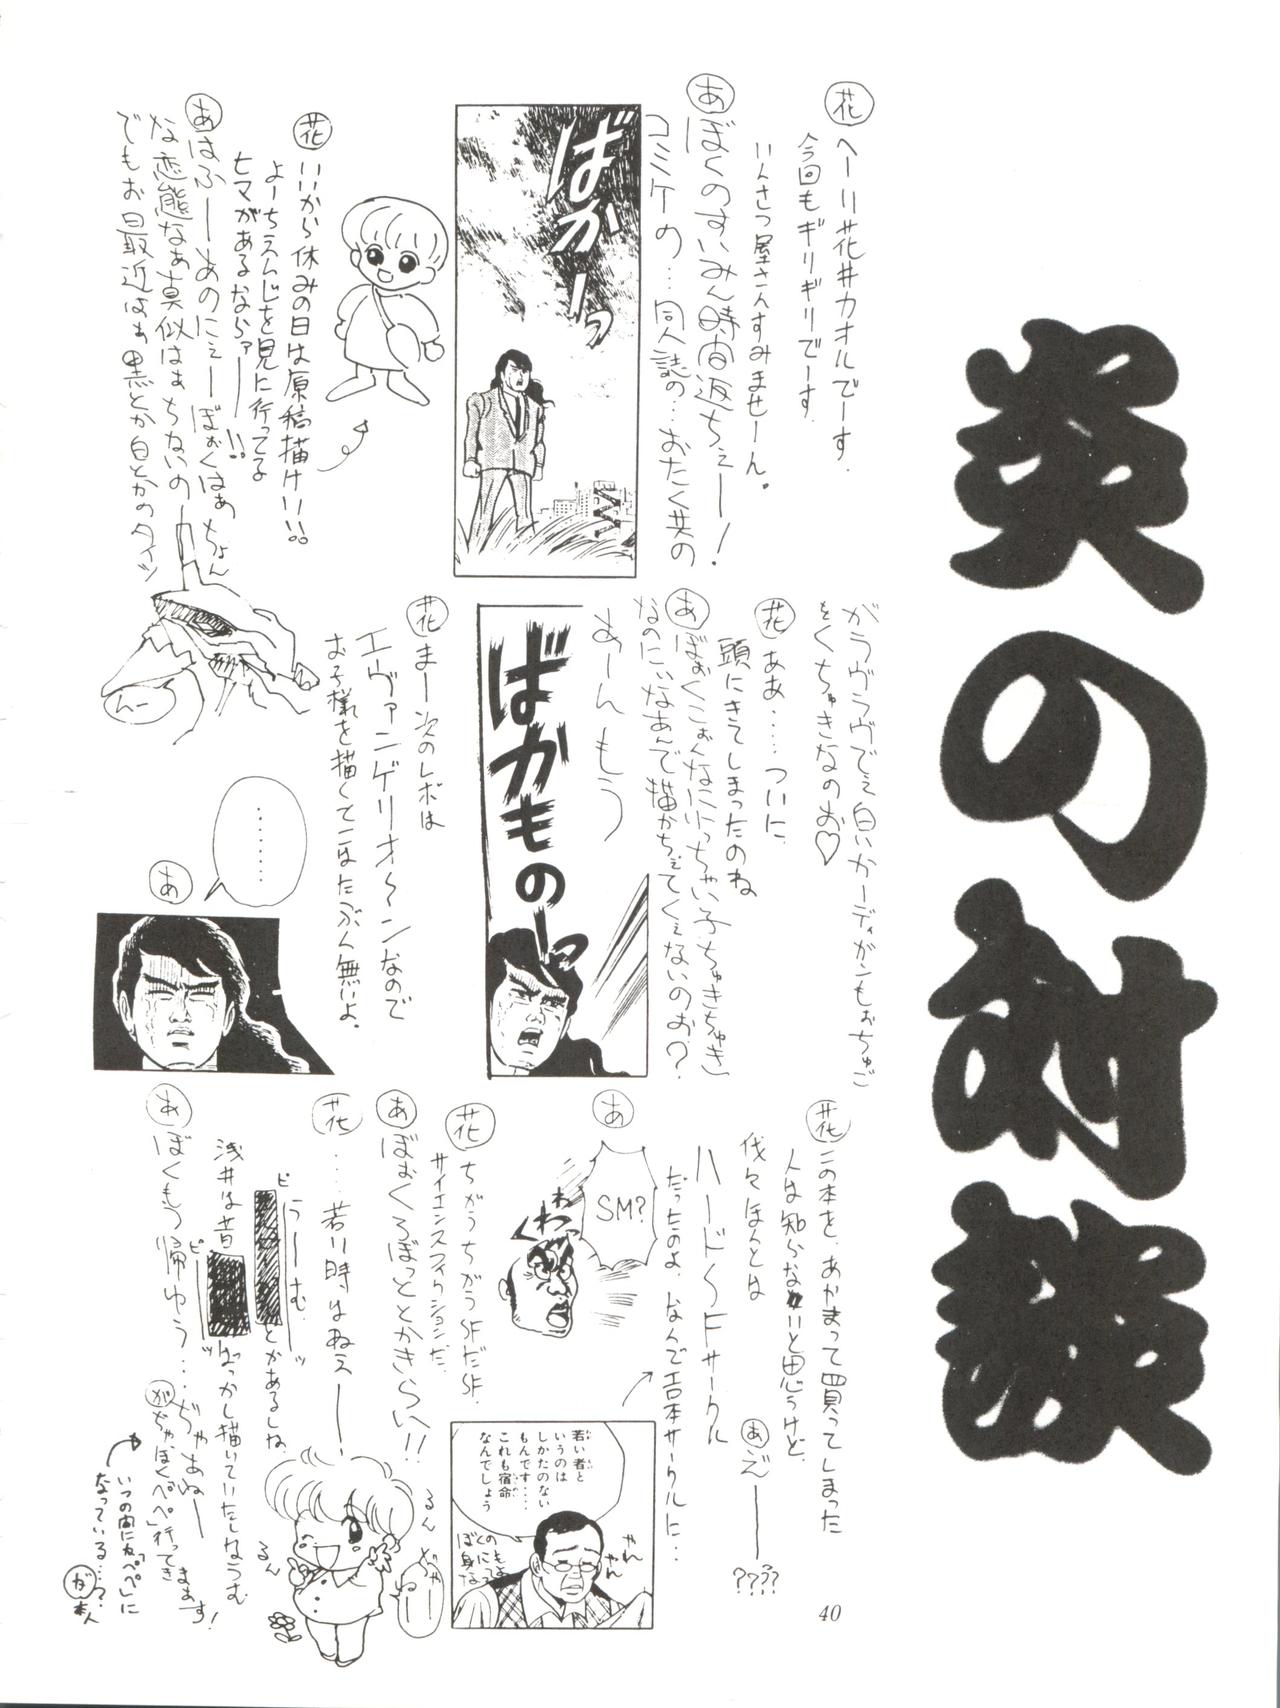 炎の対談
花 ヘーリ花井カオルでーす.
今回もギリギリでーす.
いんさつ屋さんすみませーん。
あ ぼくのすいみん時間返ちぇー!
コミケの…同人誌の…おたく共の
ばかーっ
花 いいから休みの日は原稿描けい!!
よーちえんじを見に行ってる
ヒマがあるならァー!!
あ はふーあのにぇーぼぉくはぁちょん
な変態なぁ真似はぁちないの
でもお最近はぁ黒とか白とかのタイツ
んー
がラヴラヴでぇ白いカーディガンもぉちゅご
をくちゅきなのお♡
花 ああ…ついに
頭にきてしまったのね
あ ぼぉくこぉんなにいっちゃい子ちゅきちゅき
なのにぃなあんで描かちぇてくぇないのお?
あーんもう
ばかものーっ
花 まー次のレボは
エヴァンゲリオ〜ンなので
お子様を描くことはたぶん無いよ.
………
あ
花 この本を、あやまって買ってしまった
人は知らないと思うけど、
我々ほんとは
あ え゛ー????
ハード〜Fサークル
だったのよ.なんでエロ本サークルに…
若い者と
いうのは
しかたのない
もんです…
これも宿命
なんでしょう
やん
やん
あ
SM?
くわわっ
花 ちがうちがうSFだSF.
サイエンスフィクションだ.
あ ぼぉくろぼっととかきらい!!
花 …若い時はねえー
ピーうーむ.ーッ
とかあるしね.
浅井は昔
ピーッ
ばっかし描いていたしなうむ
あ ぼくもう帰ゆう…ぢゃあねー
がちゃぼく「ペペ」行ってきまぁす!
いつの間にね「ペペ」に
なっている…?
が 本人
るん
るん
40